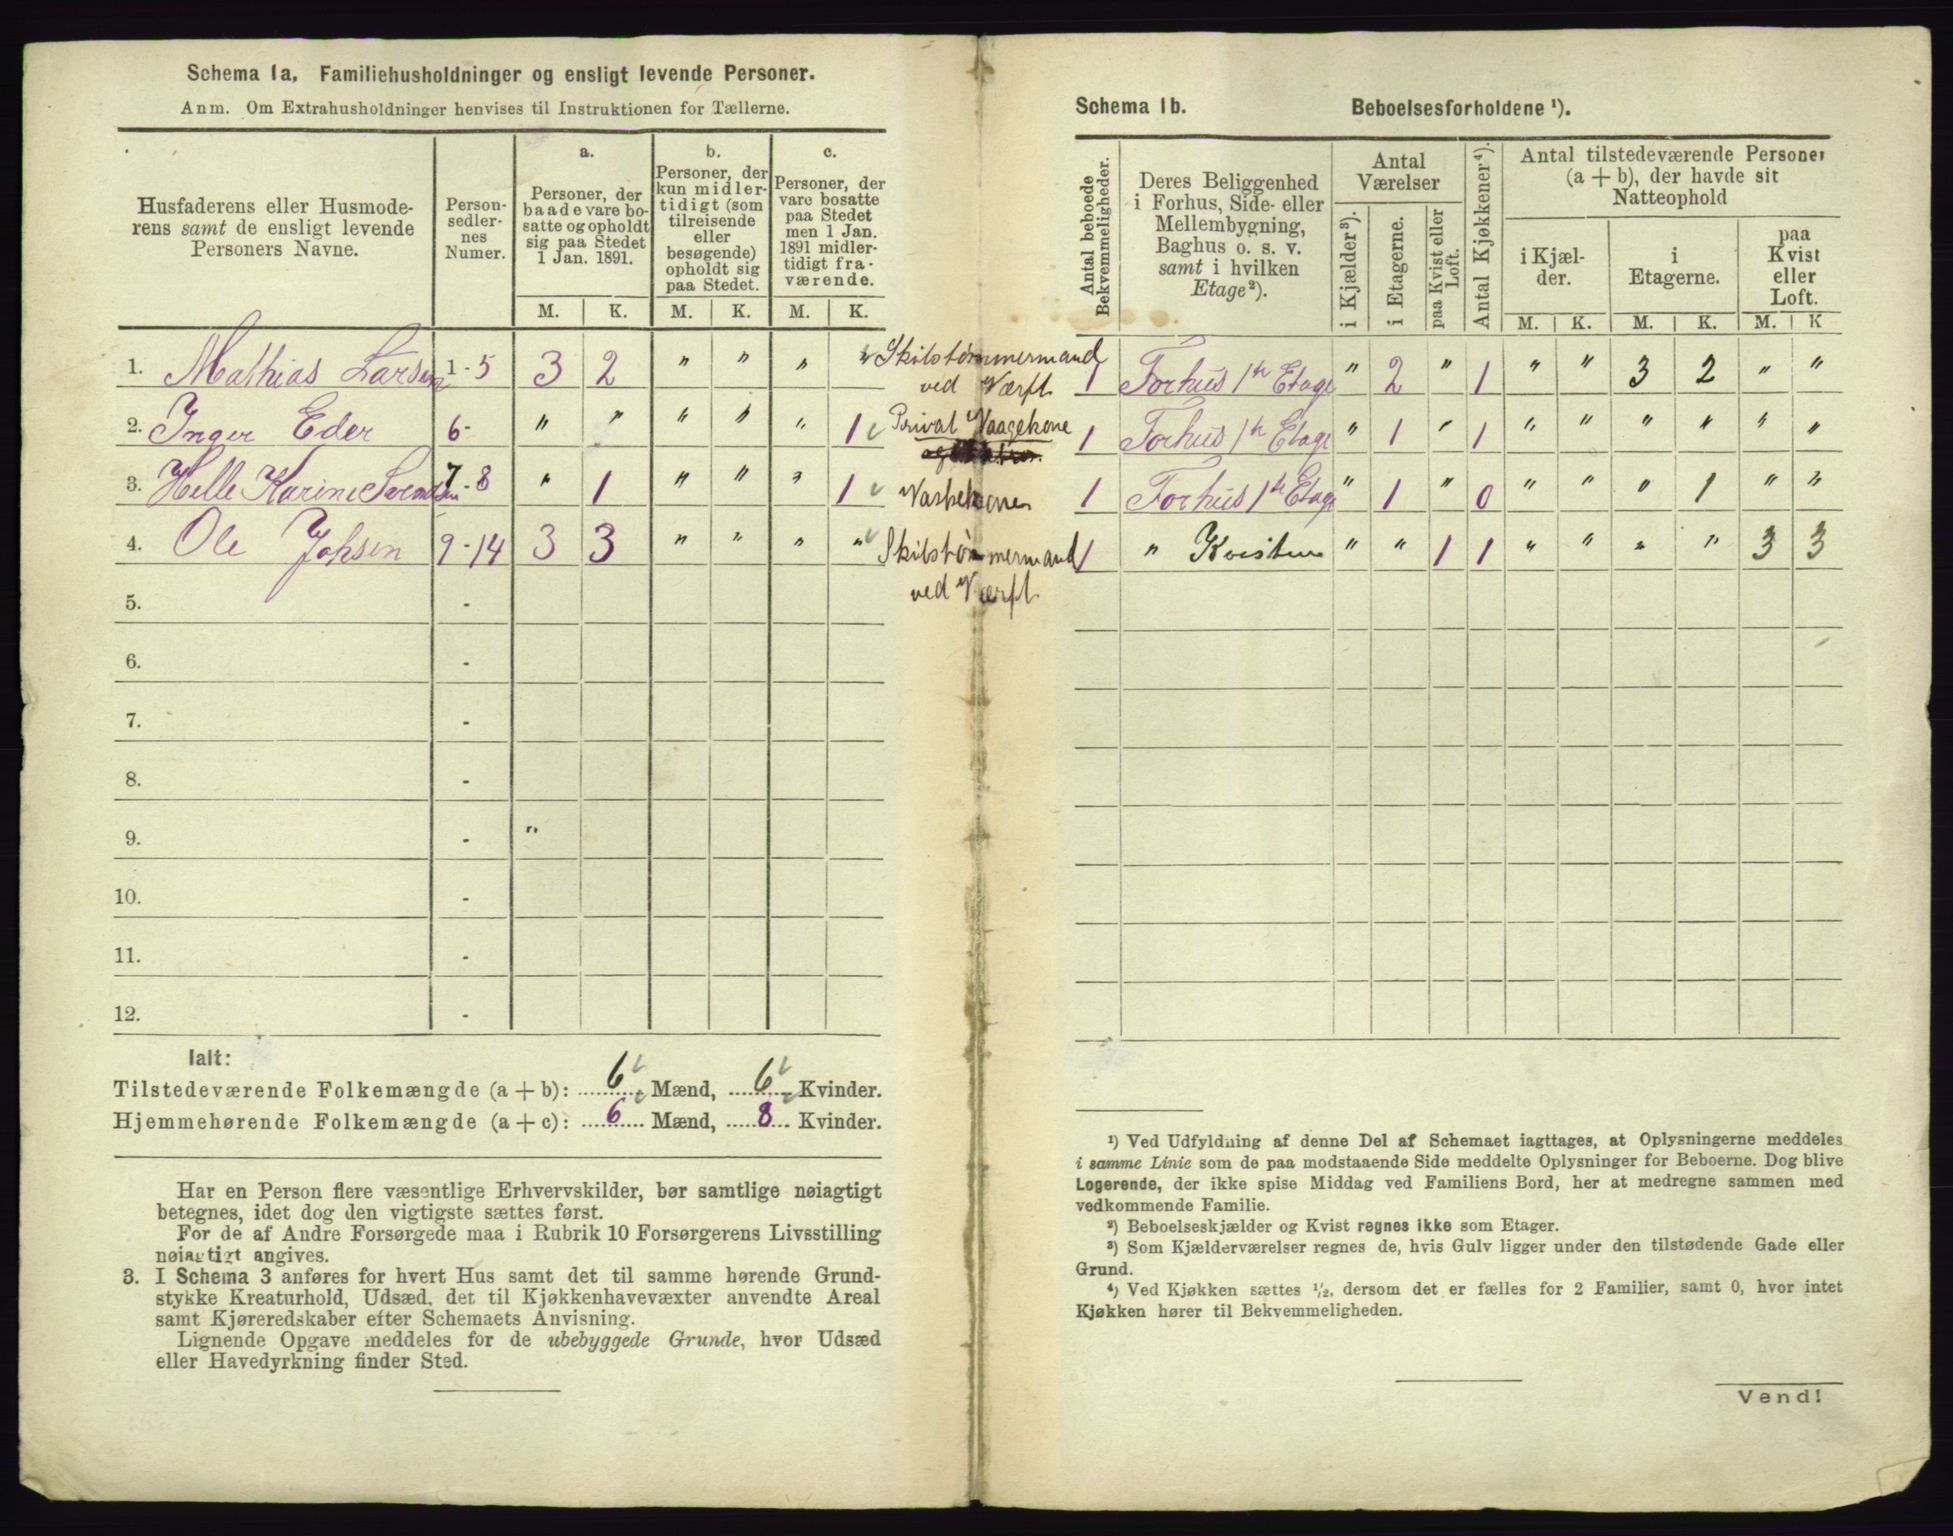 Schema 1a. Familiehusholdninger og ensligt levende Personer.
Anm. Om Extrahusholdninger henvises til Instruktionen for Tællerne.
Husfaderens eller Husmode-
rens samt de ensligt levende
Personers Navne.
Person-
sedler-
nes
Numer.
a.
Personer, der
baade vare bo-
satte og opholdt
sig paa Stedet
1 Jan. 1891.
b.
Personer, der
kun midler-
tidigt (som
tilreisende
eller
besøgende)
opholdt sig
paa Stedet.
c.
Personer, der
vare bosatte
paa Stedet
men 1 Jan.
1891 midler-
tidigt fra-
værende.
M. K. M. K. M. K.
1. Mathias Larsen 1-5 3 2 " " " " Skibstømmermand
ved Værft
2. Inger Eder 6- " " " " " 1 Privat Vaagekone
3. Helle Karine Svendsen 7-8 " 1 " " " 1 Vaskekone
4. Ole Johsen 9-14 3 3 " " " " Skibstømmermand
ved Værft
5. -
6. -
7. -
8. -
9. - "
10. -
11. -
12. -
Ialt:
Tilstedeværende Folkemængde (a + b): 6 Mænd, 6 Kvinder.
Hjemmehørende Folkemængde (a + c): 6 Mænd, 8 Kvinder.
Har en Person flere væsentlige Erhvervskilder, bør samtlige nøiagtigt
betegnes, idet dog den vigtigste sættes først.
For de af Andre Forsørgede maa i Rubrik 10 Forsørgerens Livsstilling
nøiagtigt angives.
3. I Schema 3 anføres for hvert Hus samt det til samme hørende Grund-
stykke Kreaturhold, Udsæd, det til Kjøkkenhavevæxter anvendte Areal
samt Kjøreredskaber efter Schemaets Anvisning.
Lignende Opgave meddeles for de ubebyggede Grunde, hvor Udsæd
eller Havedyrkning finder Sted.
Schema 1b. Beboelsesforholdene ¹).
Antal beboede
Bekvemmeligheder.
Deres Beliggenhed
i Forhus, Side- eller
Mellembygning,
Baghus o. s. v.
samt i hvilken
Etage²).
Antal
Værelser
i Kjælder³).
i Etagerne.
paa Kvist eller
Loft.
Antal Kjøkkener⁴).
Antal tilstedeværende Personer
(a + b), der havde sit
Natteophold
i Kjæl-
der.
i
Etagerne.
paa
Kvist
eller
Loft.
M. K. M. K. M. K
1 Forhus 1ste Etage " 2 " 1 " " 3 2 " "
1 Forhus 1ste Etage " 1 " 1 " " " " " "
1 Forhus 1ste Etage " 1 " 0 " " " 1 " "
1 " Kvisten " " 1 1 " " " " 3 3
¹) Ved Udfyldning af denne Del af Schemaet iagttages, at Oplysningerne meddeles
i samme Linie som de paa modstaaende Side meddelte Oplysninger for Beboerne. Dog blive
Logerende, der ikke spise Middag ved Familiens Bord, her at medregne sammen med
vedkommende Familie.
²) Beboelseskjælder og Kvist regnes ikke som Etager.
³) Som Kjælderværelser regnes de, hvis Gulv ligger under den tilstødende Gade eller
Grund.
⁴) Ved Kjøkken sættes ½, dersom det er fælles for 2 Familier, samt 0, hvor intet
Kjøkken hører til Bekvemmeligheden.
Vend!